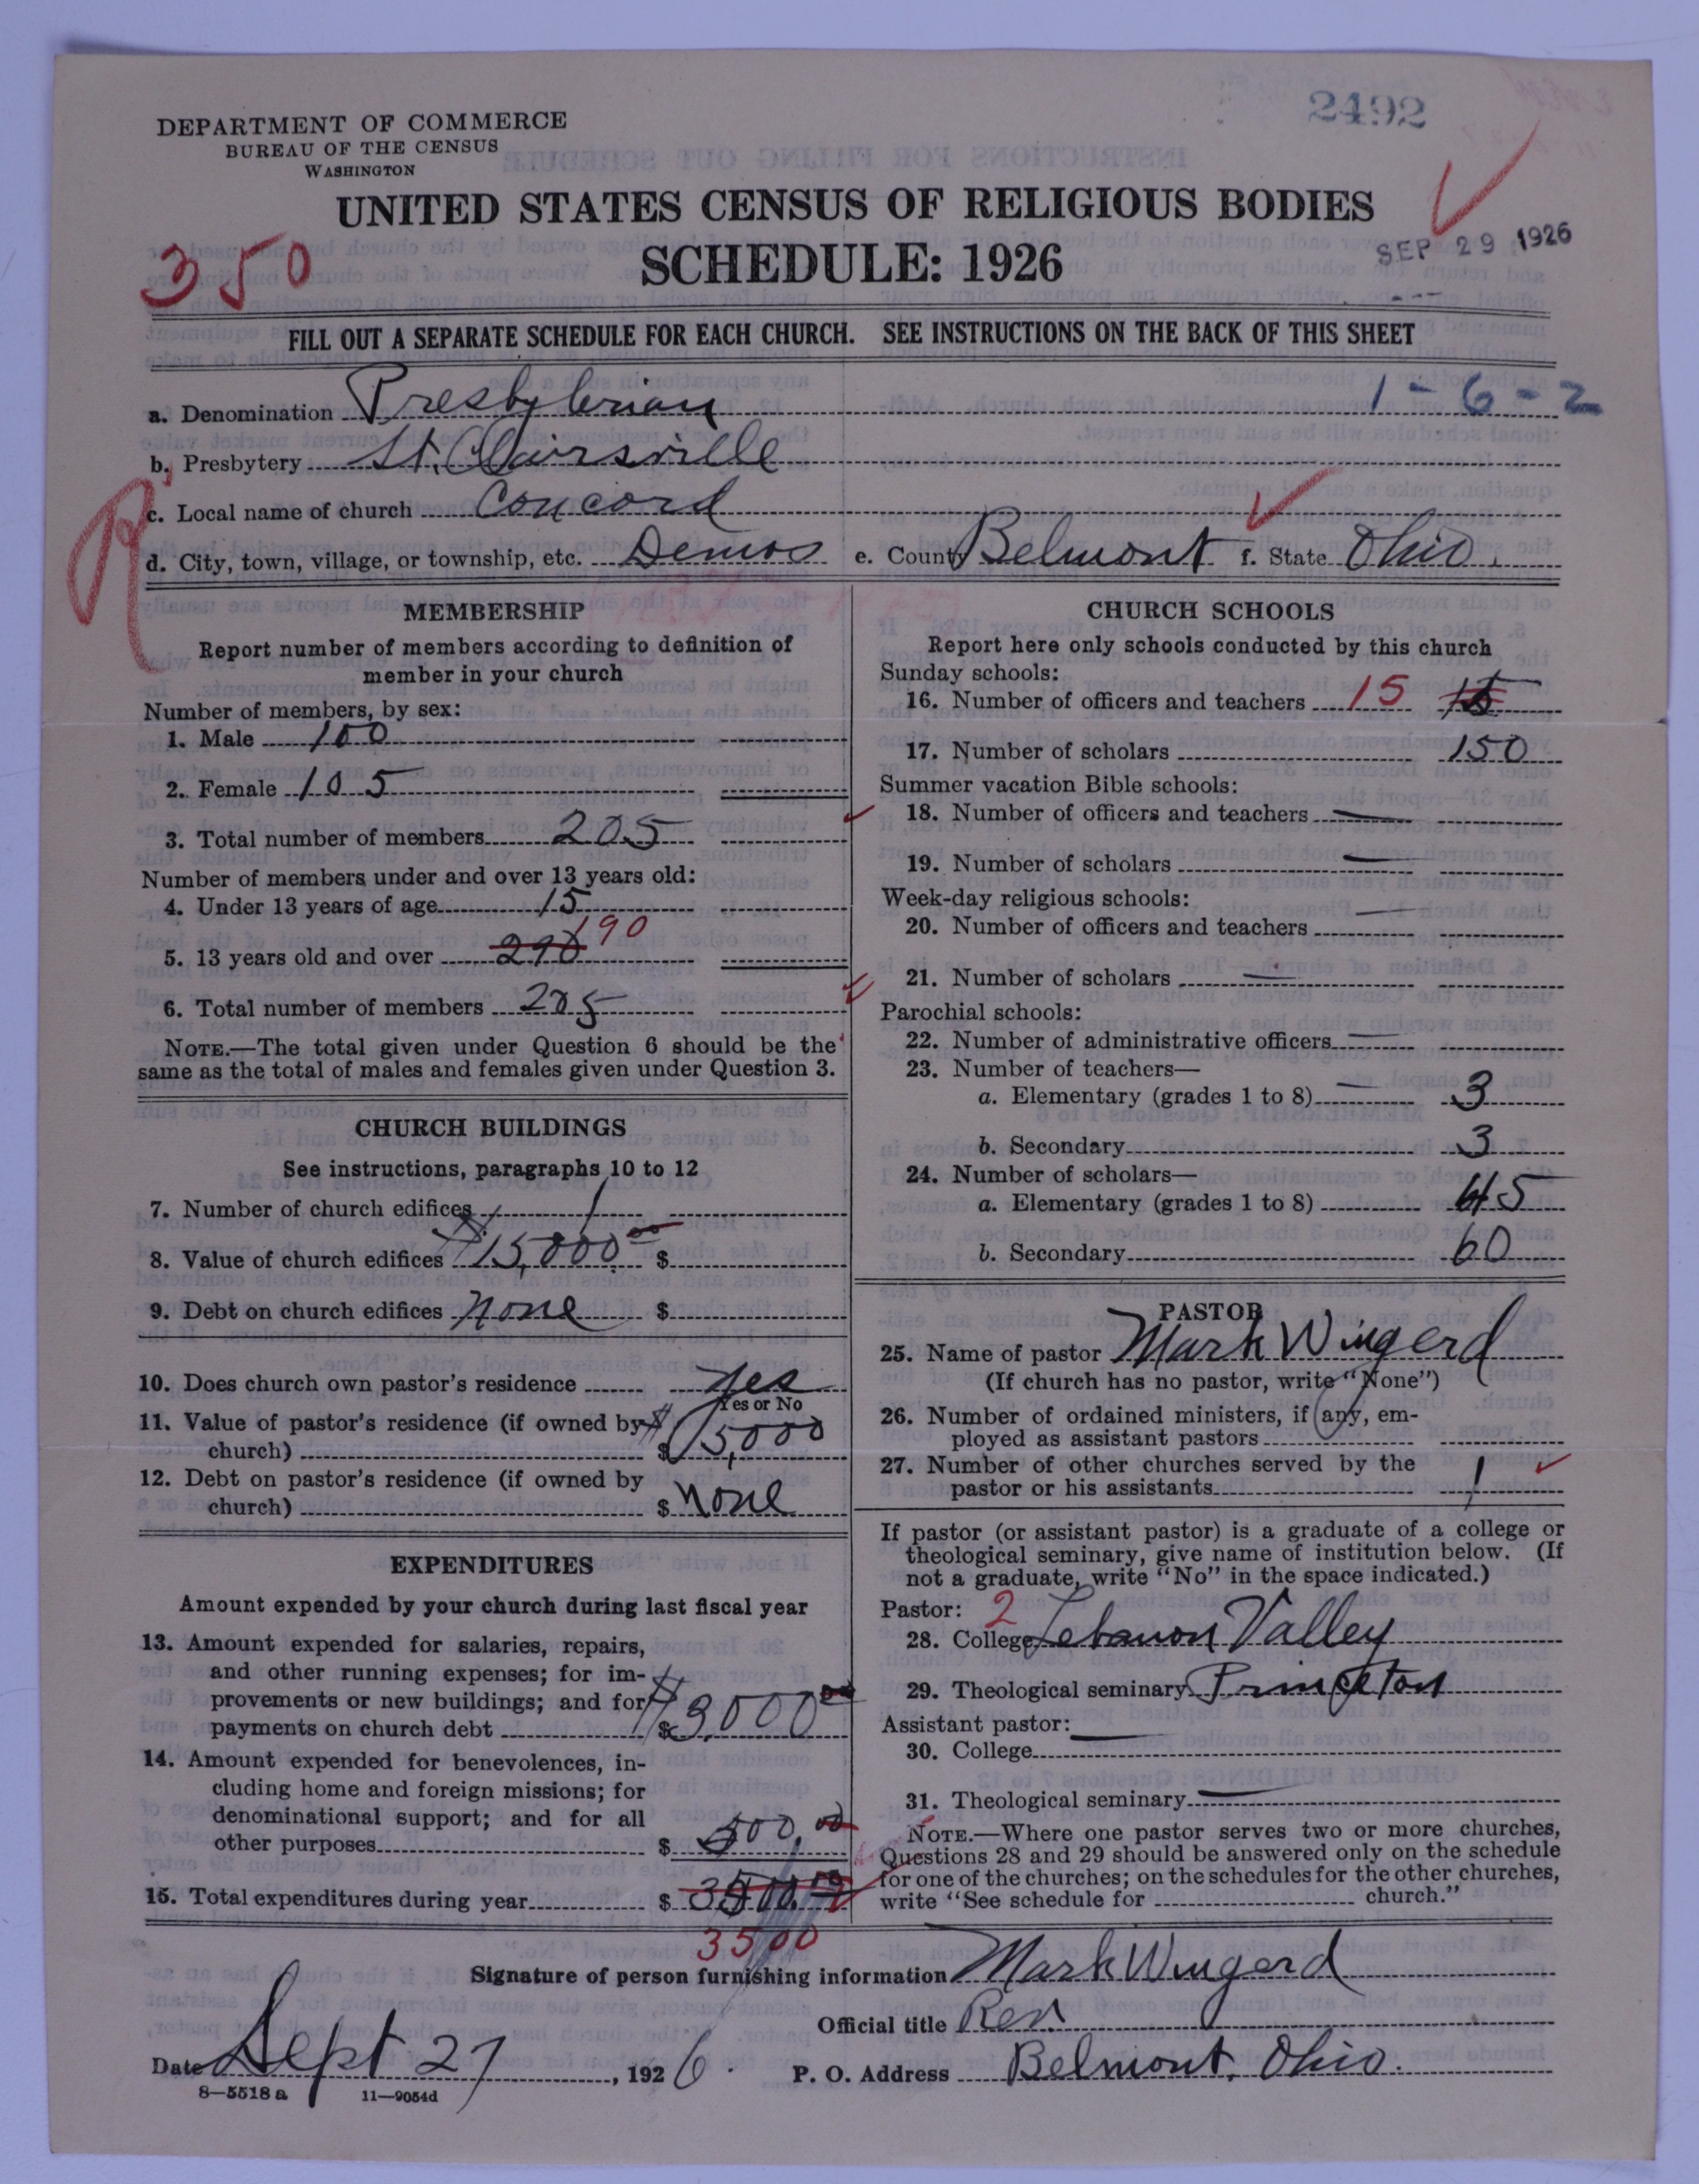 2492
DEPARTMENT OF COMMERCE
BUREAU OF THE CENSUS
WASHINGTON
UNITED STATES CENSUS OF RELIGIOUS BODIES
SCHEDULE: 1926
SEP 29 1926
350
FILL OUT A SEPARATE SCHEDULE FOR EACH CHURCH. SEE INSTRUCTIONS ON THE BACK OF THIS SHEET
a. Denomination Presbyterian 1-6-2
b. Presbytery St. Clairsville
R
c. Local name of church Concord
d. City, town, village, or township, etc. Demos e. County Belmont f. State Ohio.
MEMBERSHIP
Report number of members according to definition of
member in your church
Number of members, by sex:
1. Male 100
2. Female 105
3. Total number of members 205
Number of members under and over 13 years old:
4. Under 13 years of age 15
5. 13 years old and over 290 190
6. Total number of members 205
NOTE.—The total given under Question 6 should be the
same as the total of males and females given under Question 3.
CHURCH BUILDINGS
See instructions, paragraphs 10 to 12
7. Number of church edifices 1
8. Value of church edifices $15,000.00 $
9. Debt on church edifices None $
10. Does church own pastor's residence Yes
Yes or No
11. Value of pastor's residence (if owned by
church) $ $5,000
12. Debt on pastor's residence (if owned by
church) $ None
EXPENDITURES
Amount expended by your church during last fiscal year
13. Amount expended for salaries, repairs,
and other running expenses; for im-
provements or new buildings; and for
payments on church debt $ $3,000.00
14. Amount expended for benevolences, in-
cluding home and foreign missions; for
denominational support; and for all
other purposes $ 500.00
15. Total expenditures during year $ 3500.00
3500
CHURCH SCHOOLS
Report here only schools conducted by this church
Sunday schools:
16. Number of officers and teachers 15 15
17. Number of scholars 150
Summer vacation Bible schools:
18. Number of officers and teachers —
19. Number of scholars —
Week-day religious schools:
20. Number of officers and teachers —
21. Number of scholars —
Parochial schools:
22. Number of administrative officers —
23. Number of teachers—
a. Elementary (grades 1 to 8) — 3
b. Secondary 3
24. Number of scholars—
a. Elementary (grades 1 to 8) 45
b. Secondary 60
PASTOR
25. Name of pastor Mark Wingerd
(If church has no pastor, write "None")
26. Number of ordained ministers, if any, em-
ployed as assistant pastors
27. Number of other churches served by the
pastor or his assistants 1
If pastor (or assistant pastor) is a graduate of a college or
theological seminary, give name of institution below. (If
not a graduate, write "No" in the space indicated.)
Pastor: 2
28. College Lebanon Valley
29. Theological seminary Princeton
Assistant pastor: —
30. College
31. Theological seminary —
NOTE.—Where one pastor serves two or more churches,
Questions 28 and 29 should be answered only on the schedule
for one of the churches; on the schedules for the other churches,
write "See schedule for church."
Signature of person furnishing information Mark Wingerd
Official title Rev.
Date Sept 27, 1926. P. O. Address Belmont, Ohio.
8—5518a 11—9054d